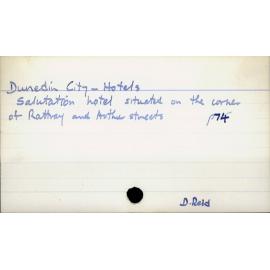 Dunedin City - Hotels
Salutation hotel situated on the corner
of Rattray and Arthur streets p74
D. Reid